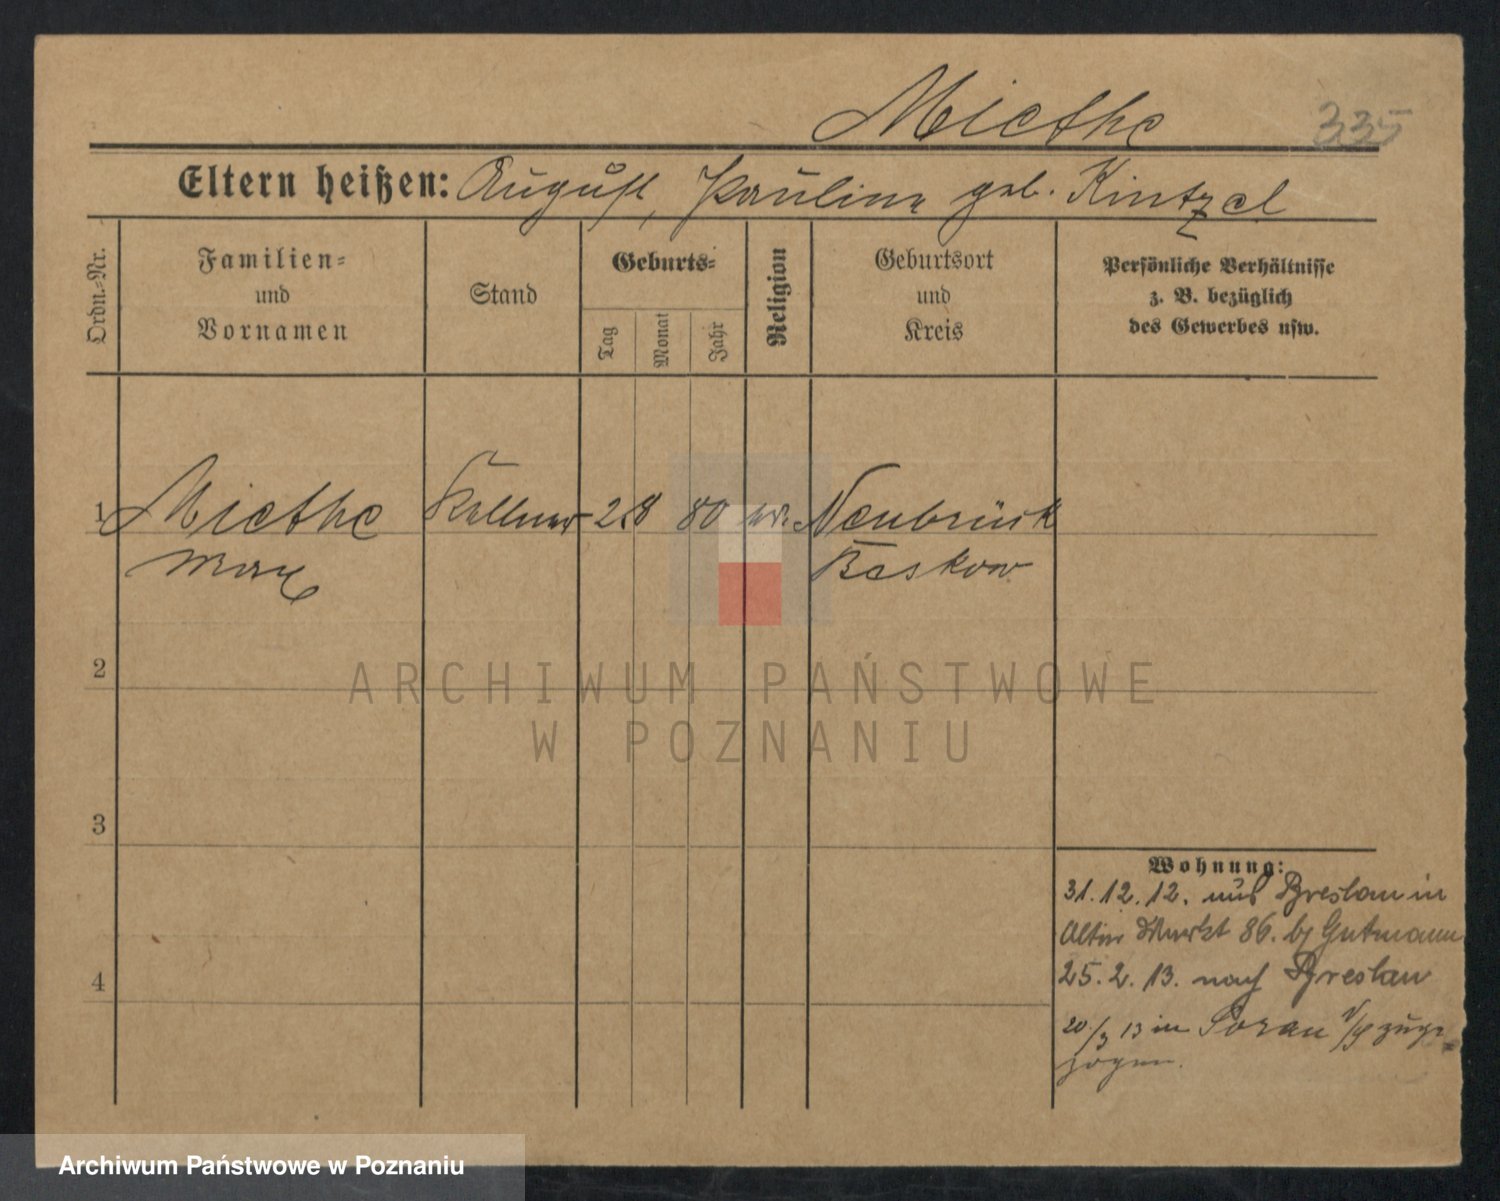 Miethe 335
Eltern heißen: August, Pauline geb. Kintzel
Ordn.-Nr.
Familien-
und
Vornamen
Stand
Geburts-
Tag
Monat
Jahr
Religion
Geburtsort
und
Kreis
Persönliche Verhältnisse
z. B. bezüglich
des Gewerbes usw.
1 Miethe Kellner 2. 8 80 Neubrück
Max Beskow
2
3
4
Wohnung:
31. 12. 12. aus Breslau in
Alter Markt 86. bj Gutmann
25. 2. 13. nach Breslau
20/3 13 in Sorau N/L zuge=
zogen.
ARCHIWUM PAŃSTWOWE
W POZNANIU
Archiwum Państwowe w Poznaniu